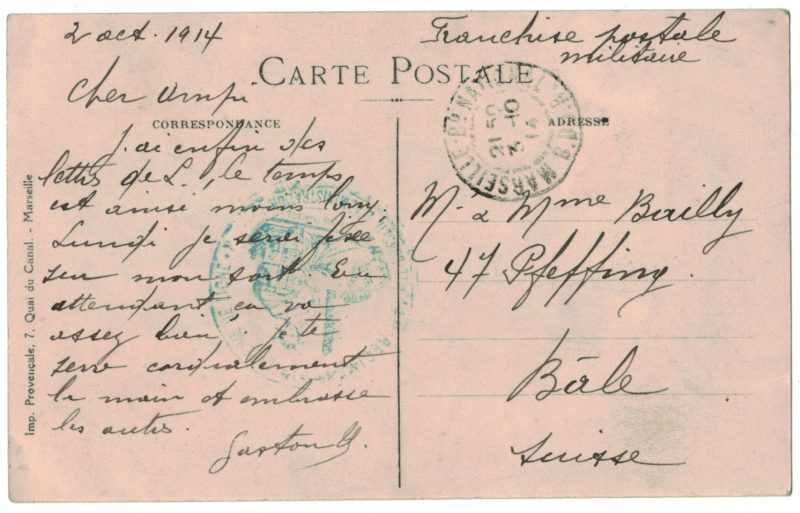 2 oct. 1914
Franchise postale
militaire
CARTE POSTALE
CORRESPONDANCE
ADRESSE
Cher
J'ai enfin des
lettres de L., le temps
est ainsi moins long,
Lundi je serai fixé
sur mon sort. En
attendant ça va
assez bien. Je te
serre cordialement
la main et embrasse
les autres.
Gaston
Mr & Mme Bailly
47 Pfeffing.
Bâle
Suisse
MARSEILLE
21 50
3 - 10
14
Imp. Provençale, 7, Quai du Canal. - Marseille